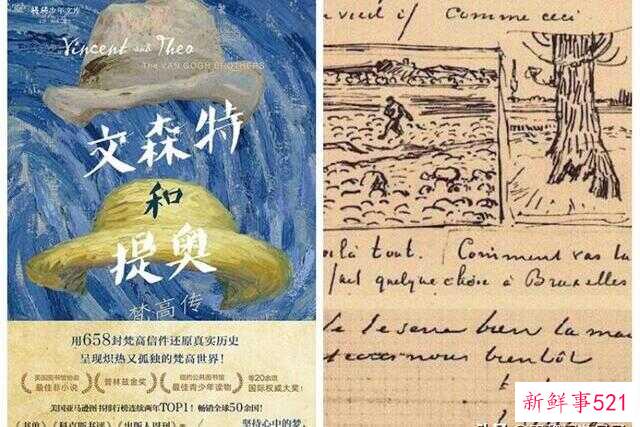 少年文库
Vincent and Theo
The VAN GOGH BROTHERS
文森特
和
提奥
梵高传
用658封梵高信件还原真实历史
呈现炽热又孤独的梵高世界！
美国图书馆协会
最佳非小说
普林兹金奖
纽约公共图书馆
最佳青少年读物
等20余项
国际权威大奖！
美国亚马逊图书排行榜连续两年TOP1！畅销全球50余国！
《书单》《科克斯书评》《出版人周刊》
坚持心中的梦，
vieil if Comme ceci
voilà tout. Comment vas tu
fait quelque chose à Bruxelles
le sens bien la mai
nous bientôt
新鲜事521